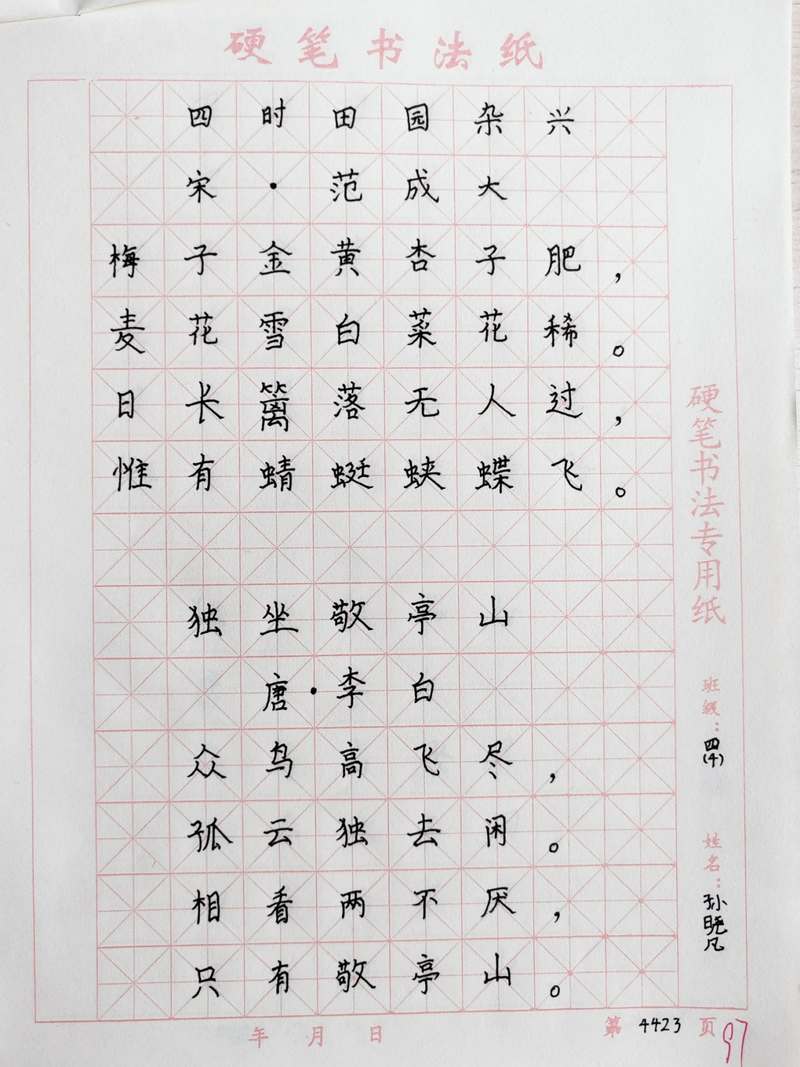 硬笔书法纸
四时田园杂兴
宋·范成大
梅子金黄杏子肥，
麦花雪白菜花稀。
日长篱落无人过，
惟有蜻蜓蛱蝶飞。
独坐敬亭山
唐·李白
众鸟高飞尽，
孤云独去闲。
相看两不厌，
只有敬亭山。
硬笔书法专用纸
班级：四(4)
姓名：孙晓凡
年 月 日
第 4423 页
97